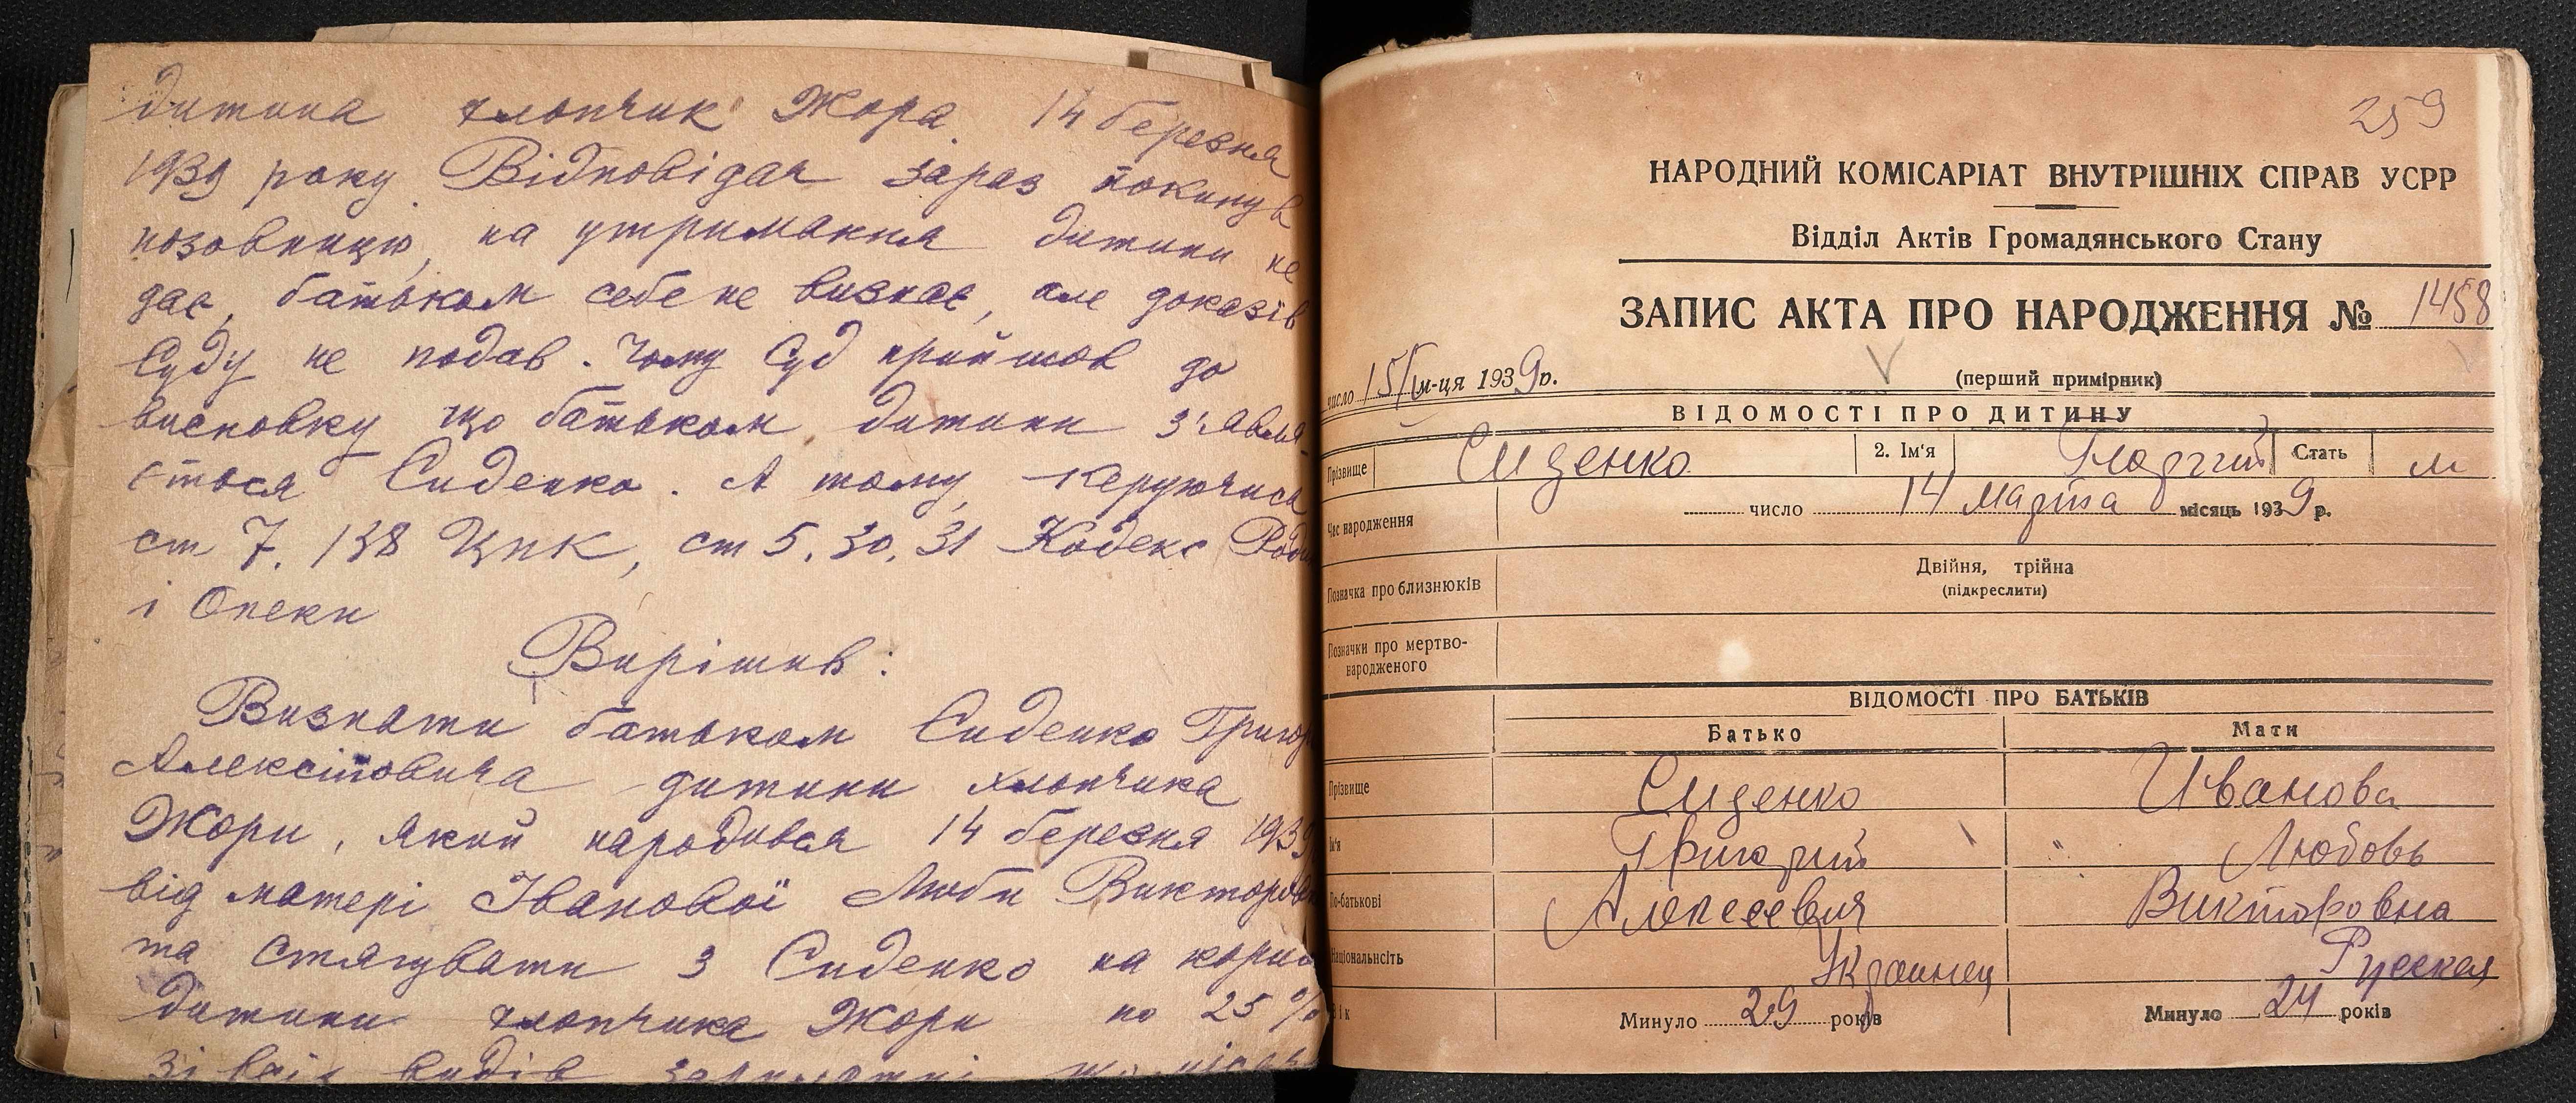 дитина хлопчик Жора 14 березня
1939 року Відповідач зараз покинув
позовницю, на утримання дитини не
дає, батьком себе не визнає, але доказів
Суду не подав. Чому Суд прийшов до
висновку що батьком дитини з'явля-
ється Сиденко. А тому, керуючись
ст 7, 138 ЦПК, ст 5, 30, 31 Кодекс Роди
і Опеки
Вирішив:
Визнати батьком Сиденко Григор
Алексійовича дитини хлопчика
Жори, який народився 14 березня 1939
від матері Іванової Люби Викторов
та стягувати з Сиденко на корис
дитини хлопчика Жори по 25%
зі всіх видів
259
НАРОДНИЙ КОМІСАРІАТ ВНУТРІШНІХ СПРАВ УСРР
Відділ Актів Громадянського Стану
ЗАПИС АКТА ПРО НАРОДЖЕННЯ № 1458
число 15/ м-ця 1939 р.
(перший примірник)
ВІДОМОСТІ ПРО ДИТИНУ
Прізвище Сиденко 2. Ім'я Стать м
Час народження число 14 марта місяць 1939 р.
Позначка про близнюків Двійня, трійна
(підкреслити)
Позначки про мертво-
народженого
ВІДОМОСТІ ПРО БАТЬКІВ
Батько Мати
Прізвище Сиденко Иванова
Ім'я Григорий Любовь
По-батькові Алексеевич Викторовна
Національність Украинец Русская
Вік Минуло 29 років Минуло 24 років